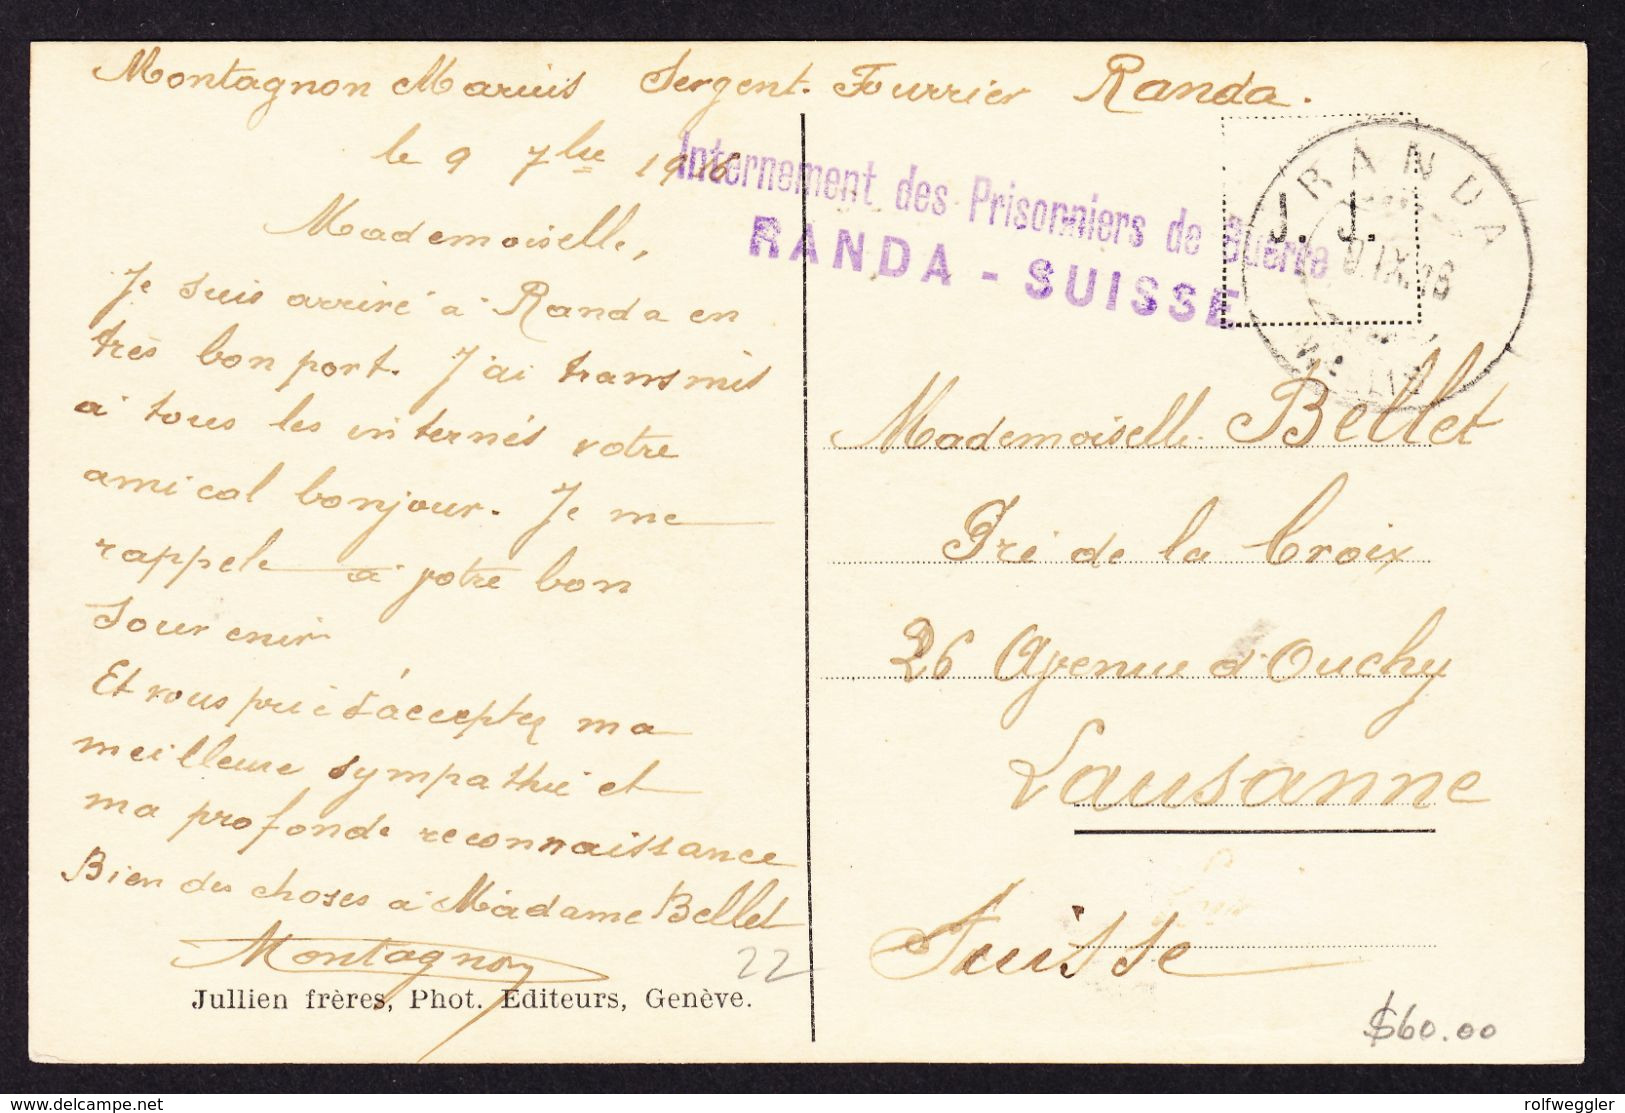 Montagnon Marius Sergent. Fourrier Randa.
le 9 7bre 1916
Internement des Prisonniers de Guerre
RANDA - SUISSE
RANDA
J. J.
9.IX.16
Mademoiselle,
Je suis arrivé à Randa en
très bon port. J'ai transmis
a tous les internés votre
amical bonjour. Je me
rappele à votre bon
souvenir
Et vous prie d'accepter ma
meilleure sympathie et
ma profonde reconnaissance
Bien des choses à Madame Bellet
Montagnon
22
Jullien frères, Phot. Editeurs, Genève.
Mademoiselle Bellet
Pré de la Croix
26 Avenue d'Ouchy
Lausanne
Suisse
$60.00
www.delcampe.net
rolfweggler